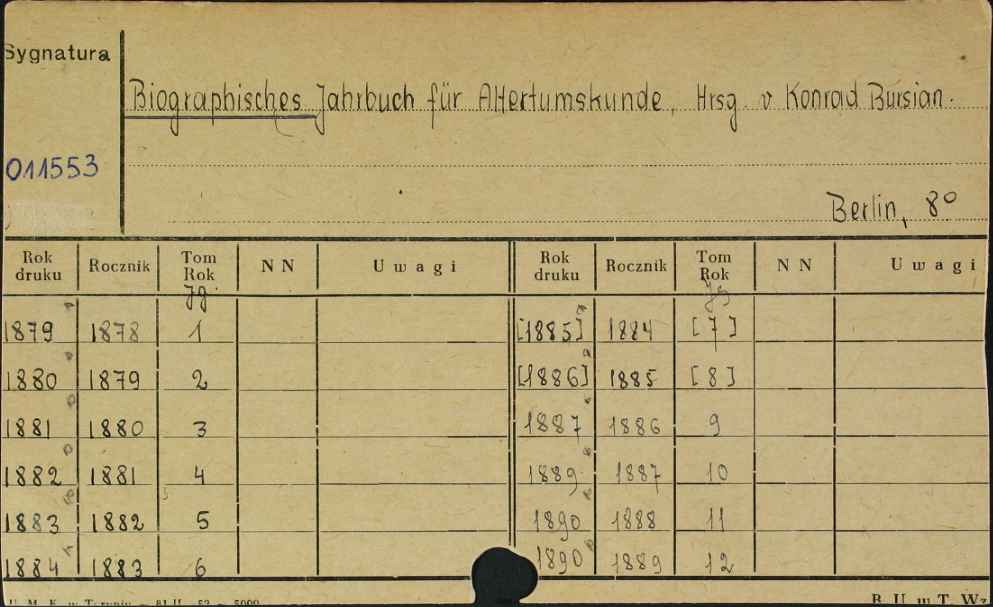 Sygnatura
Biographisches Jahrbuch für Altertumskunde, Hrsg. v Konrad Bursian.
011553
Berlin, 8º
Rok druku Rocznik Tom Rok NN Uwagi Rok druku Rocznik Tom Rok NN Uwagi
Jg. Jg
1879 1878 1 [1885] 1884 [7]
1880 1879 2 [1886] 1885 [8]
1881 1880 3 1887 1886 9
1882 1881 4 1889 1887 10
1883 1882 5 1890 1888 11
1884 1883 6 1890 1889 12
U. M. K. w Toruniu 5000 B. U. w T. Wz